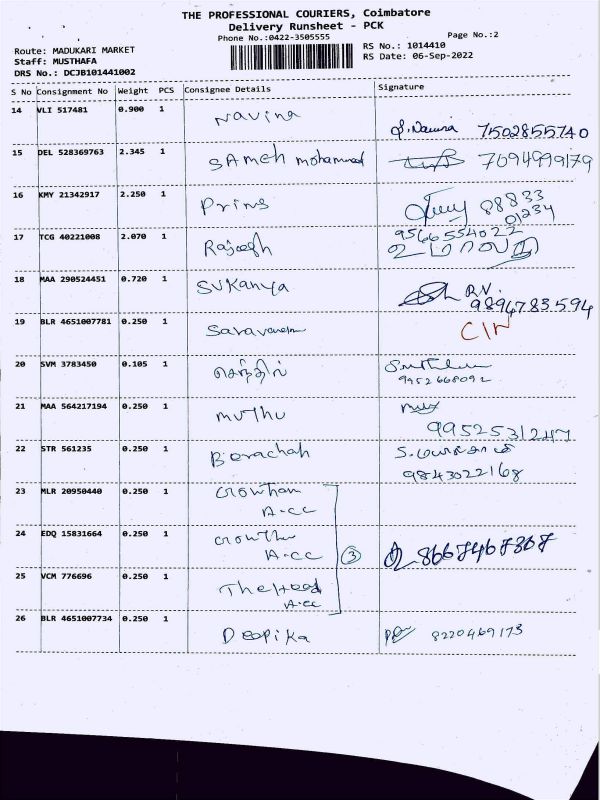 THE PROFESSIONAL COURIERS, Coimbatore
Delivery Runsheet - PCK
Phone No.:0422-3505555
Page No.:2
Route: MADUKARI MARKET
RS No.: 1014410
Staff: MUSTHAFA
RS Date: 06-Sep-2022
DRS No.: DCJB101441002
S No Consignment No Weight PCS Consignee Details Signature
14 VLI 517481 0.900 1 Navina 7502855740
15 DEL 528369763 2.345 1 SAmeh mohammed 7094999179
16 KMY 21342917 2.250 1 Prins 88833
01234
17 TCG 40221008 2.070 1 Rajesh 9566554022
18 MAA 290524451 0.720 1 SUKanya R.V.
9894783594
19 BLR 4651007781 0.250 1 Saravanan
20 SVM 3783450 0.105 1 செந்தில்
9952668092
21 MAA 564217194 0.250 1 MUTHU
9952531247
22 STR 561235 0.250 1 Berachah
9843022168
23 MLR 20950440 0.250 1
A.CC
24 EDQ 15831664 0.250 1
A.CC 3 8667467367
25 VCM 776696 0.250 1
A.CC
26 BLR 4651007734 0.250 1 Deepika 8220469173